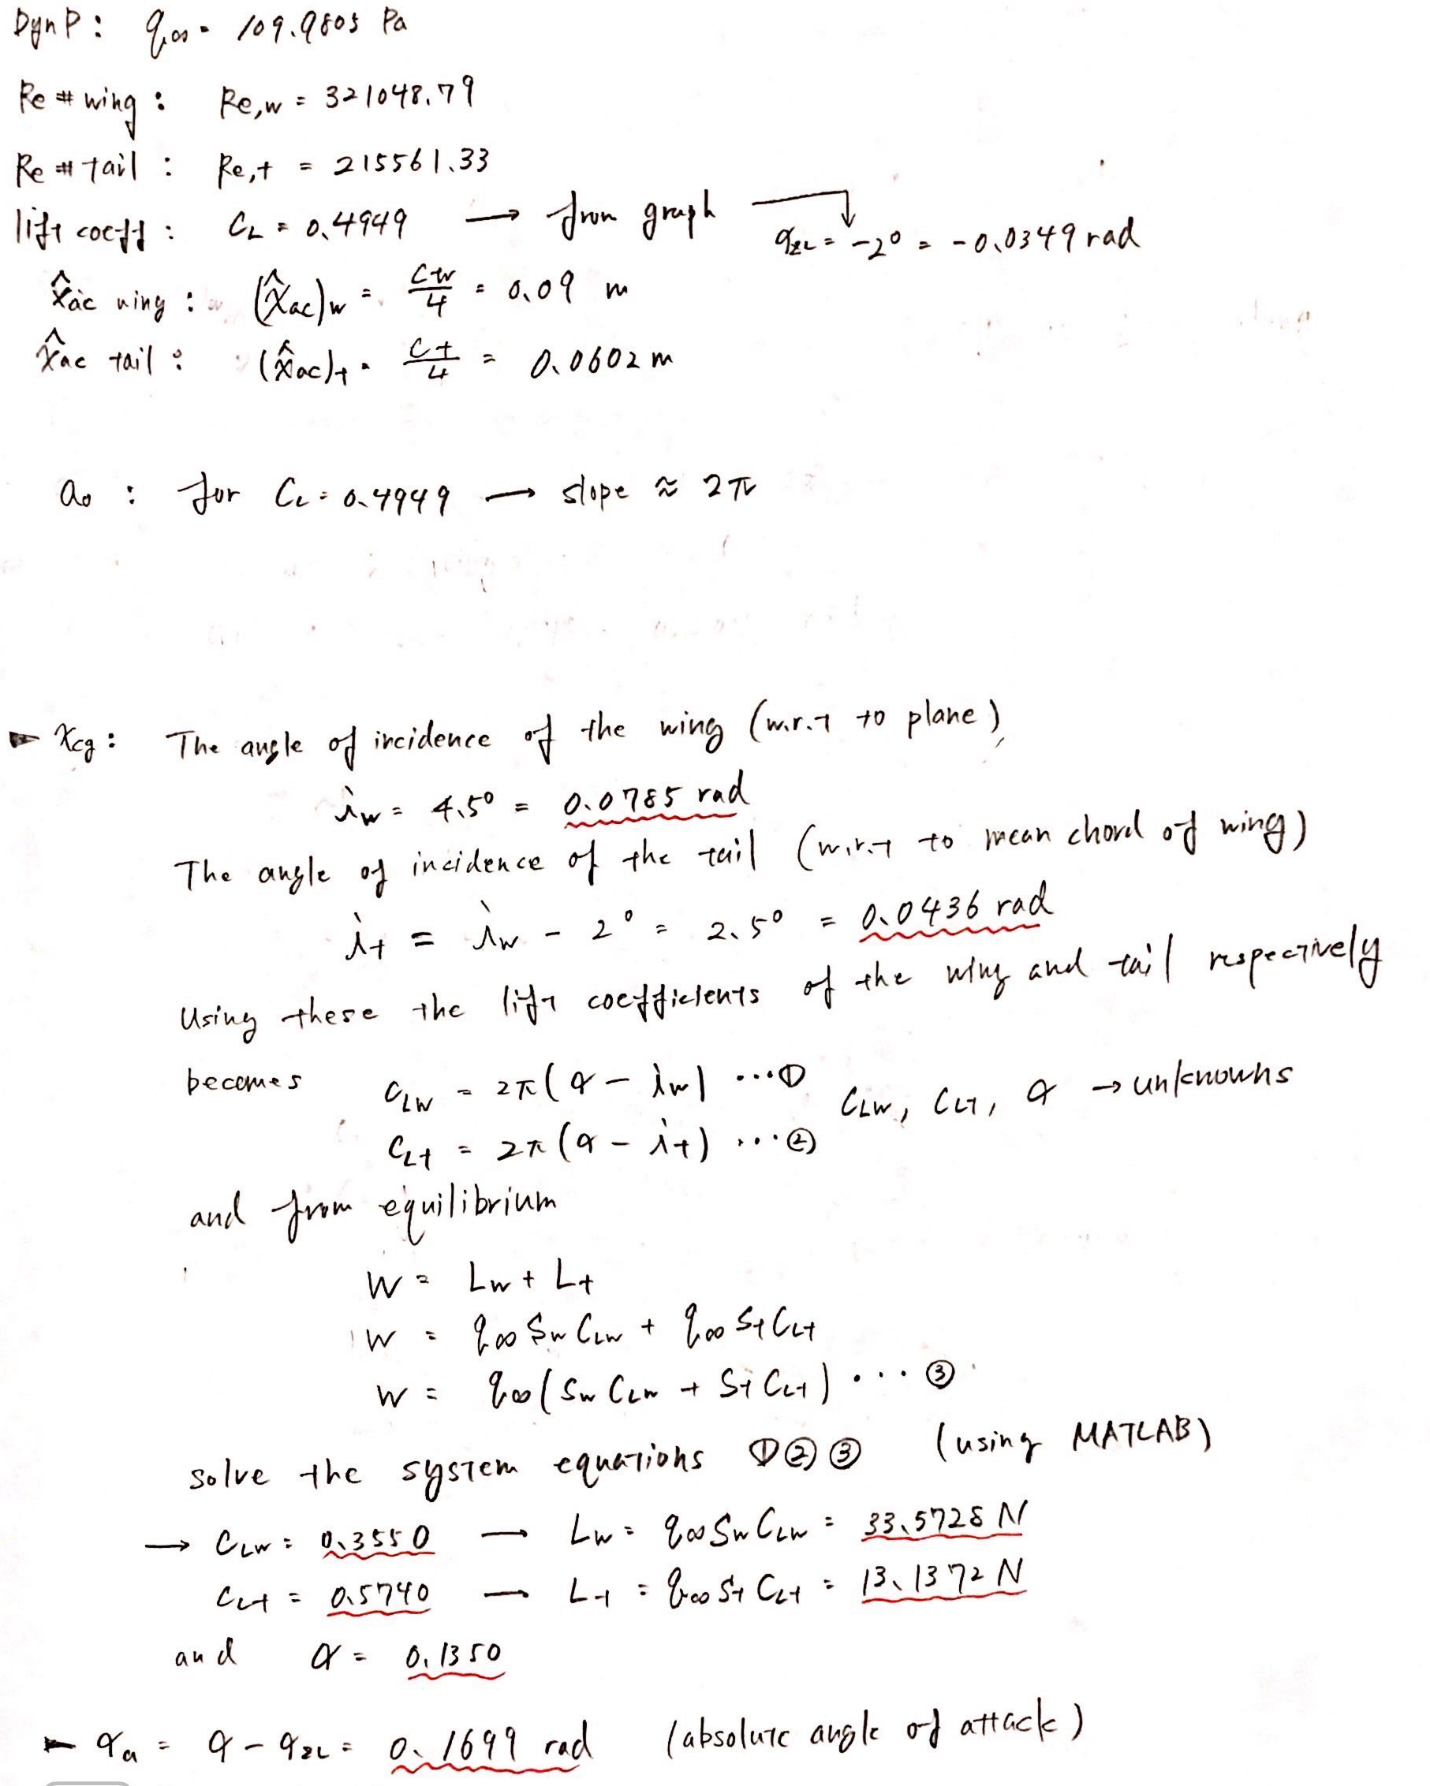 DynP : q∞ = 109.9805 Pa
Re # wing : Re,w = 321048.79
Re # tail : Re,t = 215561.33
lift coeff : CL = 0.4949 → from graph αZL = -2° = -0.0349 rad
x̂ac wing : (x̂ac)w = cw/4 = 0.09 m
x̂ac tail : (x̂ac)t = ct/4 = 0.0602 m
a0 : for CL = 0.4949 → slope ≈ 2π
► xcg : The angle of incidence of the wing (w.r.t to plane)
iw = 4.5° = 0.0785 rad
The angle of incidence of the tail (w.r.t to mean chord of wing)
it = iw - 2° = 2.5° = 0.0436 rad
Using these the lift coefficients of the wing and tail respectively
becomes CLw = 2π(α - iw) ...①
CLw, CLt, α → unknowns
CLt = 2π(α - it) ...②
and from equilibrium
W = Lw + Lt
W = q∞ Sw CLw + q∞ St CLt
W = q∞(Sw CLw + St CLt) ... ③
solve the system equations ①②③ (using MATLAB)
→ CLw = 0.3550 → Lw = q∞ Sw CLw = 33.5728 N
CLt = 0.5740 → Lt = q∞ St CLt = 13.1372 N
and α = 0.1350
► αa = α - αZL = 0.1699 rad (absolute angle of attack)